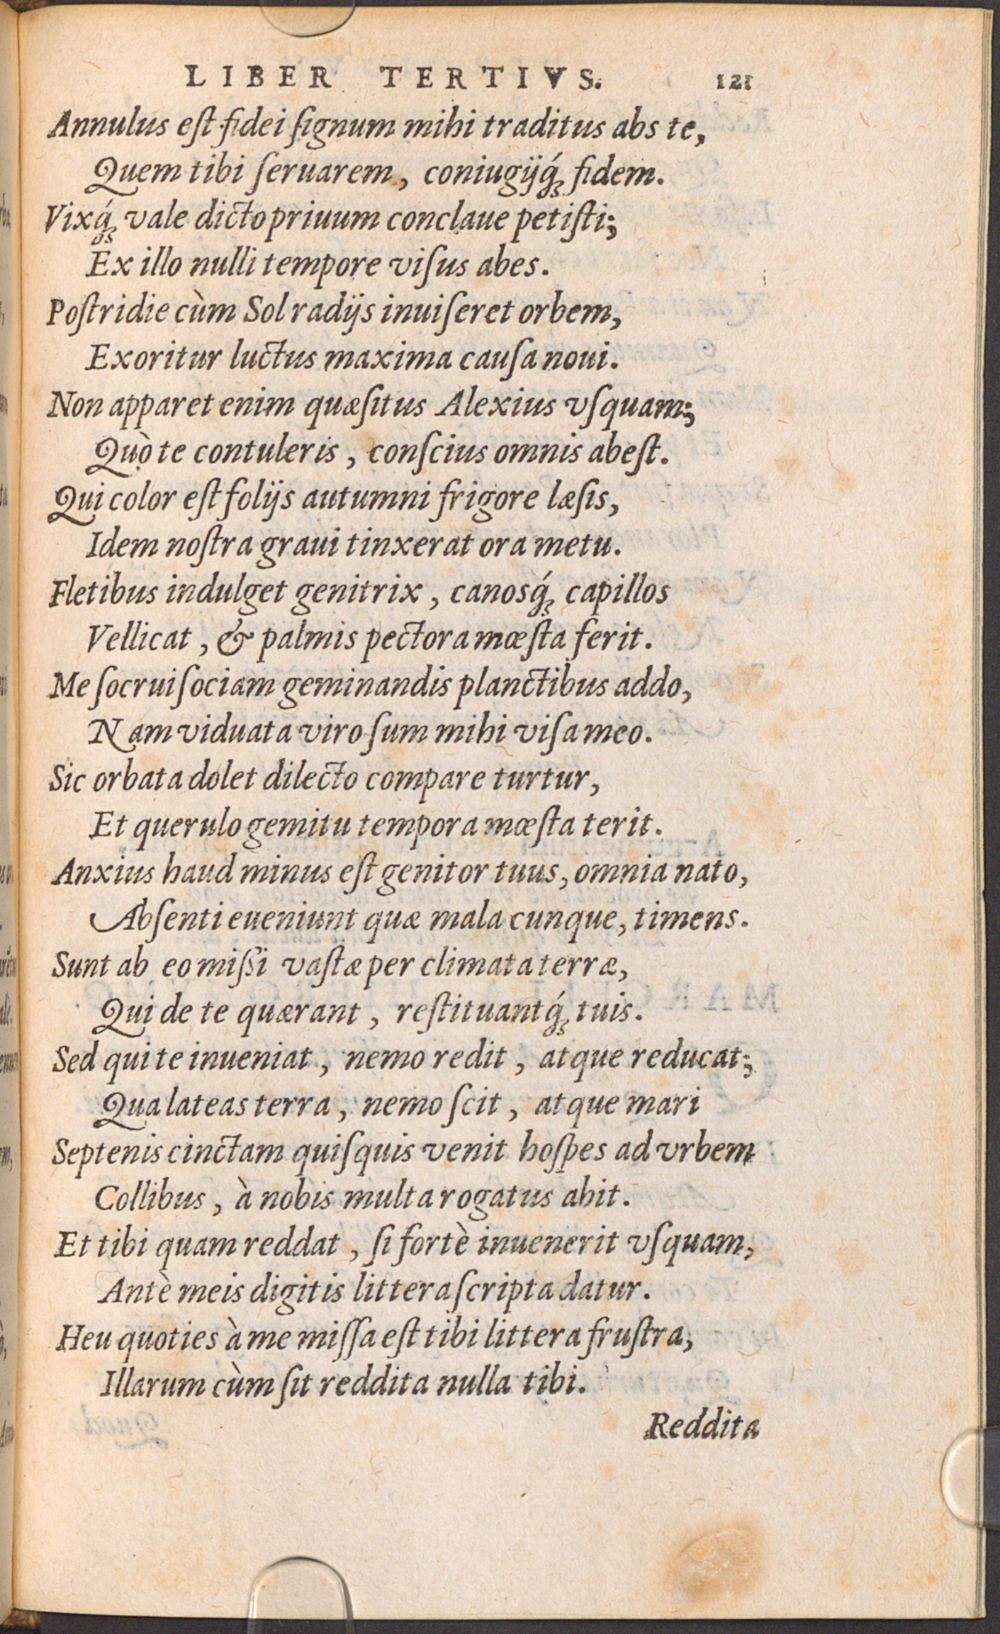 LIBER TERTIVS. 121
Annulus eſt fidei ſignum mihi traditus abs te,
Quem tibi ſeruarem, coniugijq́ꝫ fidem.
Vixq́ꝫ vale dicto priuum conclaue petiſti;
Ex illo nulli tempore viſus abes.
Poſtridie cùm Sol radijs inuiſeret orbem,
Exoritur luctus maxima cauſa noui.
Non apparet enim quæſitus Alexius vſquam;
Quò te contuleris, conſcius omnis abeſt.
Qui color eſt folijs autumni frigore læſis,
Idem noſtra graui tinxerat ora metu.
Fletibus indulget genitrix, canosq́ꝫ capillos
Vellicat, & palmis pectora mœſta ferit.
Me ſocrui ſociam geminandis planctibus addo,
Nam viduata viro ſum mihi viſa meo.
Sic orbata dolet dilecto compare turtur,
Et querulo gemitu tempora mœſta terit.
Anxius haud minus eſt genitor tuus, omnia nato,
Abſenti eueniunt quæ mala cunque, timens.
Sunt ab eo miſſi vaſtæ per climata terræ,
Qui de te quærant, reſtituantq́ꝫ tuis.
Sed qui te inueniat, nemo redit, atque reducat;
Qua lateas terra, nemo ſcit, atque mari
Septenis cinctam quiſquis venit hoſpes ad vrbem
Collibus, à nobis multa rogatus abit.
Et tibi quam reddat, ſi fortè inuenerit vſquam,
Antè meis digitis littera ſcripta datur.
Heu quoties à me miſſa eſt tibi littera fruſtra,
Illarum cùm ſit reddita nulla tibi.
Reddita